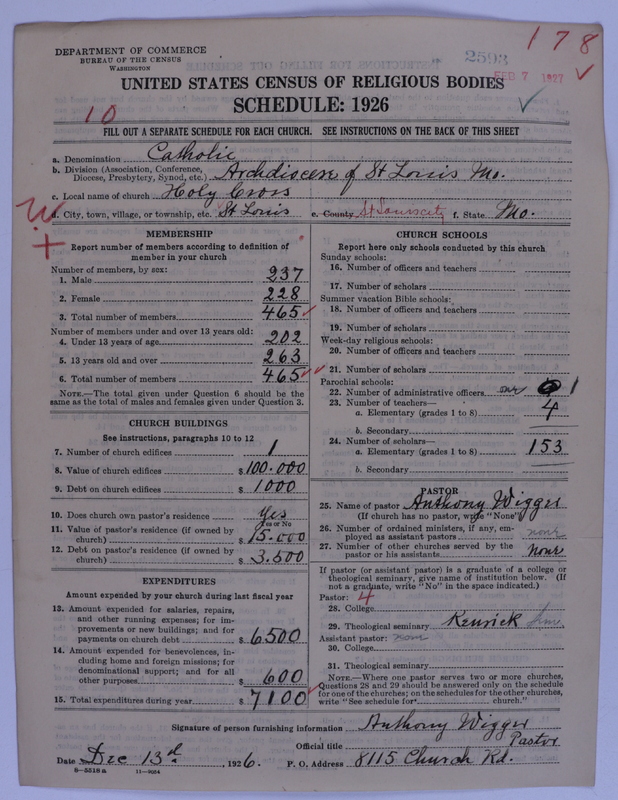 178
DEPARTMENT OF COMMERCE
BUREAU OF THE CENSUS
WASHINGTON
2593
FEB 7 1927
UNITED STATES CENSUS OF RELIGIOUS BODIES
SCHEDULE: 1926
10
FILL OUT A SEPARATE SCHEDULE FOR EACH CHURCH. SEE INSTRUCTIONS ON THE BACK OF THIS SHEET
a. Denomination Catholic
b. Division (Association, Conference, Diocese, Presbytery, Synod, etc.) Archdiocese of St Louis Mo.
c. Local name of church Holy Cross
d. City, town, village, or township, etc. St Louis e. County St Louis city f. State Mo.
MEMBERSHIP
Report number of members according to definition of
member in your church
Number of members, by sex:
1. Male 237
2. Female 228
3. Total number of members 465
Number of members under and over 13 years old:
4. Under 13 years of age 202
5. 13 years old and over 263
6. Total number of members 465
NOTE.—The total given under Question 6 should be
same as the total of males and females given under Question 3.
CHURCH BUILDINGS
See instructions, paragraphs 10 to 12
7. Number of church edifices 1
8. Value of church edifices $ 100.000
9. Debt on church edifices $ 1000
10. Does church own pastor's residence Yes
Yes or No
11. Value of pastor's residence (if owned by
church) $ 15.000
12. Debt on pastor's residence (if owned by
church) $ 3.500
EXPENDITURES
Amount expended by your church during last fiscal year
13. Amount expended for salaries, repairs,
and other running expenses; for im-
provements or new buildings; and for
payments on church debt $ 6500
14. Amount expended for benevolences, in-
cluding home and foreign missions; for
denominational support; and for all
other purposes $ 600
15. Total expenditures during year $ 7100
CHURCH SCHOOLS
Report here only schools conducted by this church
Sunday schools:
16. Number of officers and teachers
17. Number of scholars
Summer vacation Bible schools:
18. Number of officers and teachers
19. Number of scholars
Week-day religious schools:
20. Number of officers and teachers
21. Number of scholars
Parochial schools:
22. Number of administrative officers one 1
23. Number of teachers—
a. Elementary (grades 1 to 8) 4
b. Secondary
24. Number of scholars—
a. Elementary (grades 1 to 8) 153
b. Secondary
PASTOR
25. Name of pastor Anthony Wigger
(If church has no pastor, write "None")
26. Number of ordained ministers, if any, em-
ployed as assistant pastors none
27. Number of other churches served by the
pastor or his assistants none
If pastor (or assistant pastor) is a graduate of a college or
theological seminary, give name of institution below. (If
not a graduate, write "No" in the space indicated.)
Pastor: 4
28. College
29. Theological seminary Kenrick Sem
Assistant pastor: none
30. College
31. Theological seminary
NOTE.—Where one pastor serves two or more churches,
Questions 28 and 29 should be answered only on the schedule
for one of the churches; on the schedules for the other churches,
write "See schedule for church."
Signature of person furnishing information Anthony Wigger
Official title Pastor
Date Dec 13th, 1926. P. O. Address 8115 Church Rd.
8—5518a 11—9024